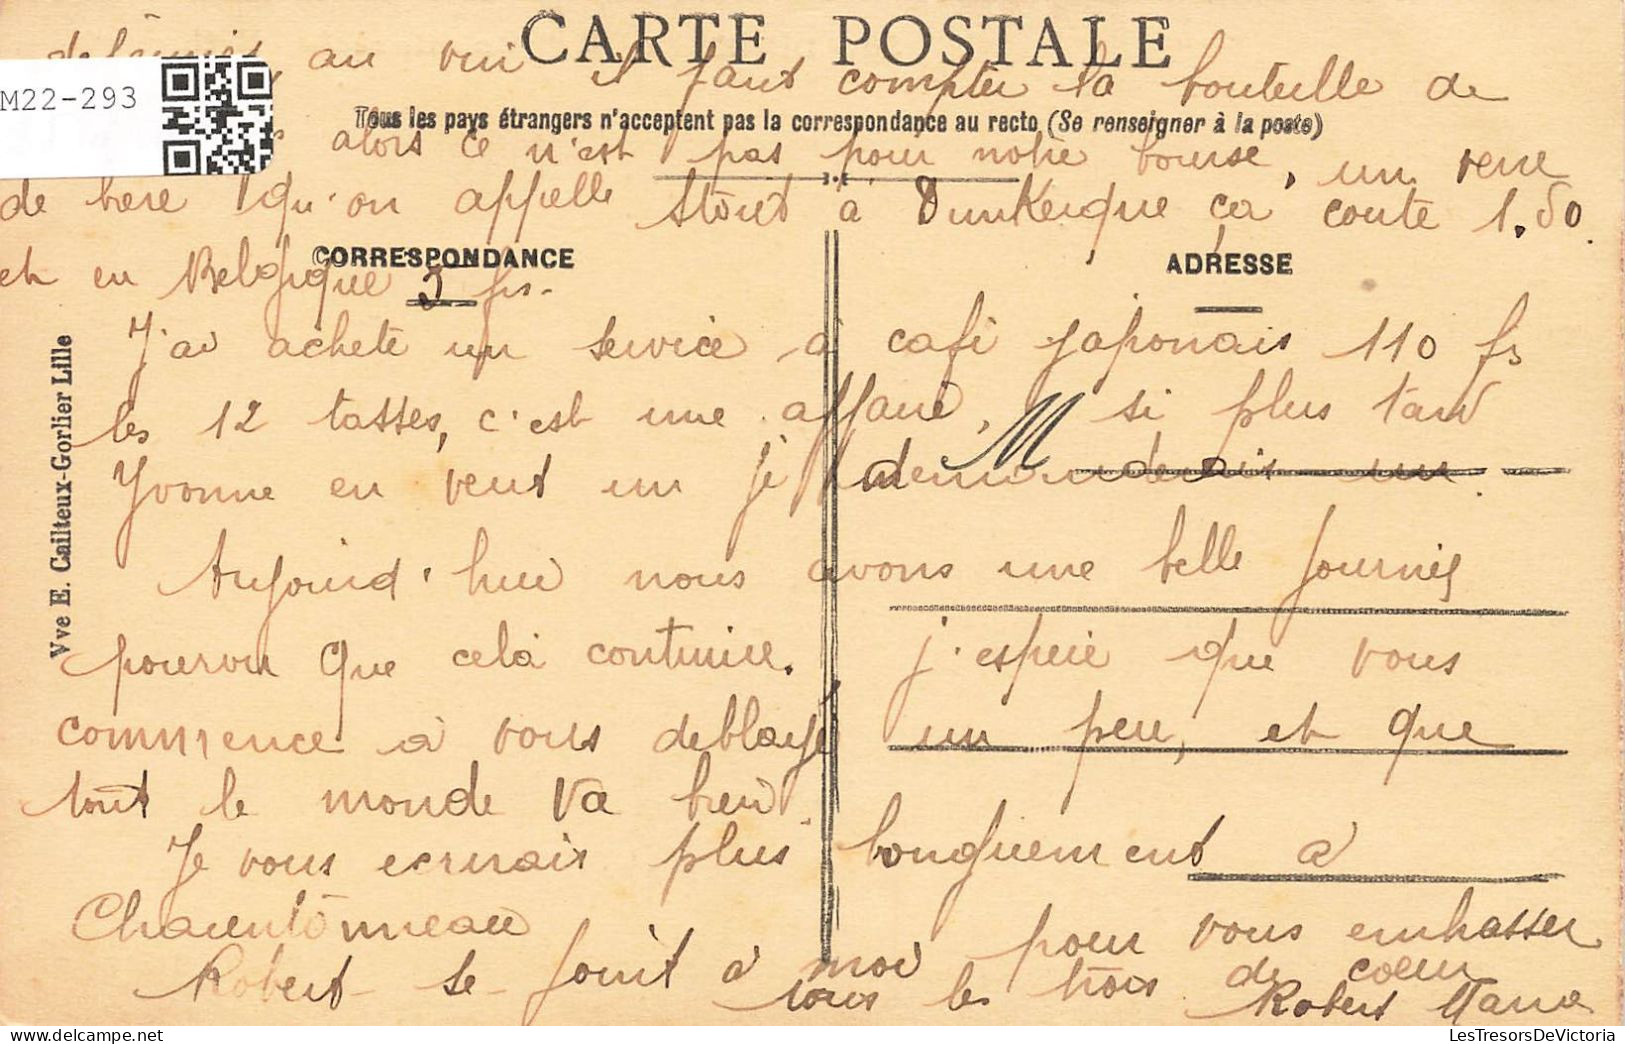 CARTE POSTALE
au vin il faut compter la bouteille de
M22-293
Tous les pays étrangers n'acceptent pas la correspondance au recto (Se renseigner à la poste)
alors ce n'est pas pour notre bourse, un verre
de biere qu'on appelle Stout à Dunkerque ca coute 1.50.
et en Belgique 3 frs.
CORRESPONDANCE
ADRESSE
J'ai acheté un service à café japonais 110 frs
les 12 tasses, c'est une affaire, si plus tard
M
Yvonne en veut un je demanderais un
Aujourd'hui nous avons une belle journée
pourvu que cela continue. j'espere que vous
commence à vous deblayé un peu, et que
tout le monde va bien.
Je vous ecrirais plus longuement a
Charentonneau
Robert se joint à moi pour vous embrasser
tous les trois de coeur
Robert
Vve E. Cailteux-Gorlier Lille
LesTresorsDeVictoria